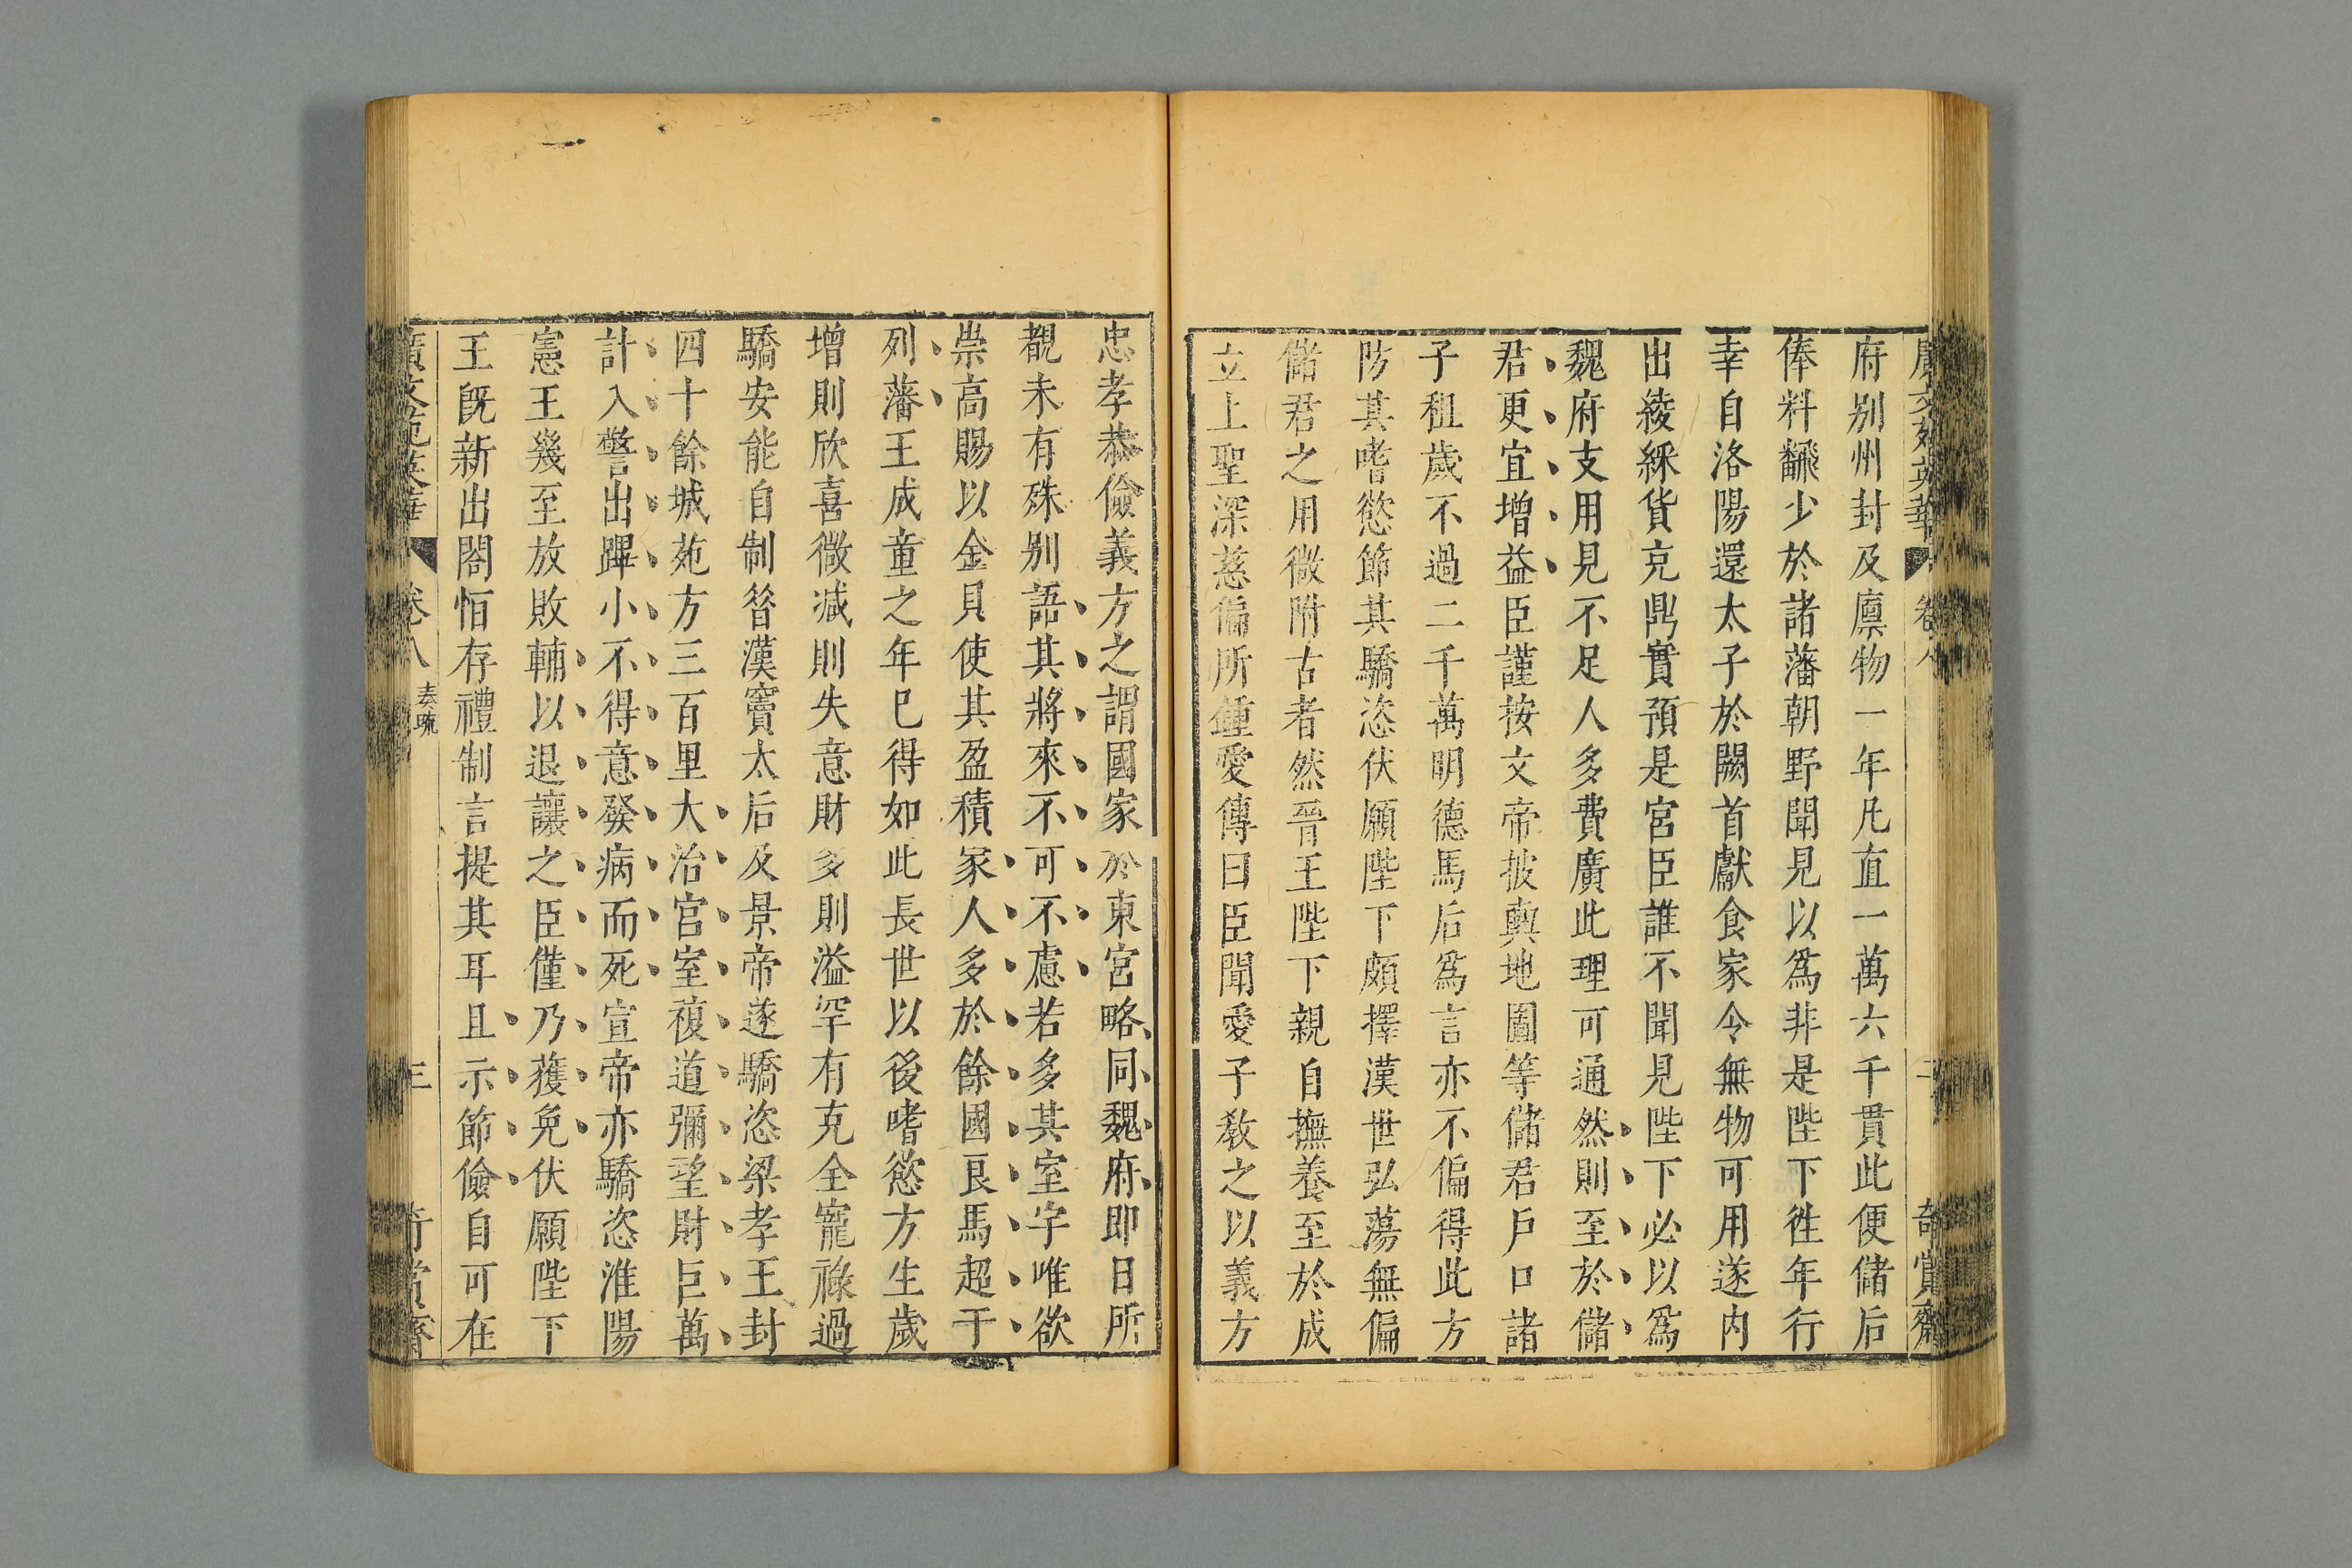 廣文苑英華 卷八 二 奇賞齋
府别州封及廩物一年凡直一萬六千貫此便儲后
俸料飜少於諸藩朝野聞見以爲非是陛下徃年行
幸自洛陽還太子於闕首獻食家令無物可用遂内
出綾綵貨充鼎實預是宮臣誰不聞見陛下必以爲
魏府支用見不足人多費廣此理可通然則至於儲
君更宜增益臣謹按文帝披輿地圖等儲君戶口諸
子租歲不過二千萬明德馬后爲言亦不偏得此方
防其嗜慾節其驕恣伏願陛下頗擇漢世弘蕩無偏
儲君之用微附古者然晉王陛下親自撫養至於成
立上聖深慈偏所鍾愛傳曰臣聞愛子教之以義方
忠孝恭儉義方之謂國家於東宮略同魏府即日所
覩未有殊别語其將來不可不慮若多其室宇唯欲
崇高賜以金貝使其盈積家人多於餘國良馬超于
列藩王成童之年已得如此長世以後嗜慾方生歲
增則欣喜微減則失意財多則溢罕有克全寵祿過
驕安能自制昝漢竇太后及景帝遂驕恣梁孝王封
四十餘城苑方三百里大治宮室複道彌望財巨萬
計入警出蹕小不得意發病而死宣帝亦驕恣淮陽
憲王幾至放敗輔以退讓之臣僅乃獲免伏願陛下
王旣新出閤怕存禮制言提其耳且示節儉自可在
廣文苑英華 卷八 奏疏 三 奇賞齋